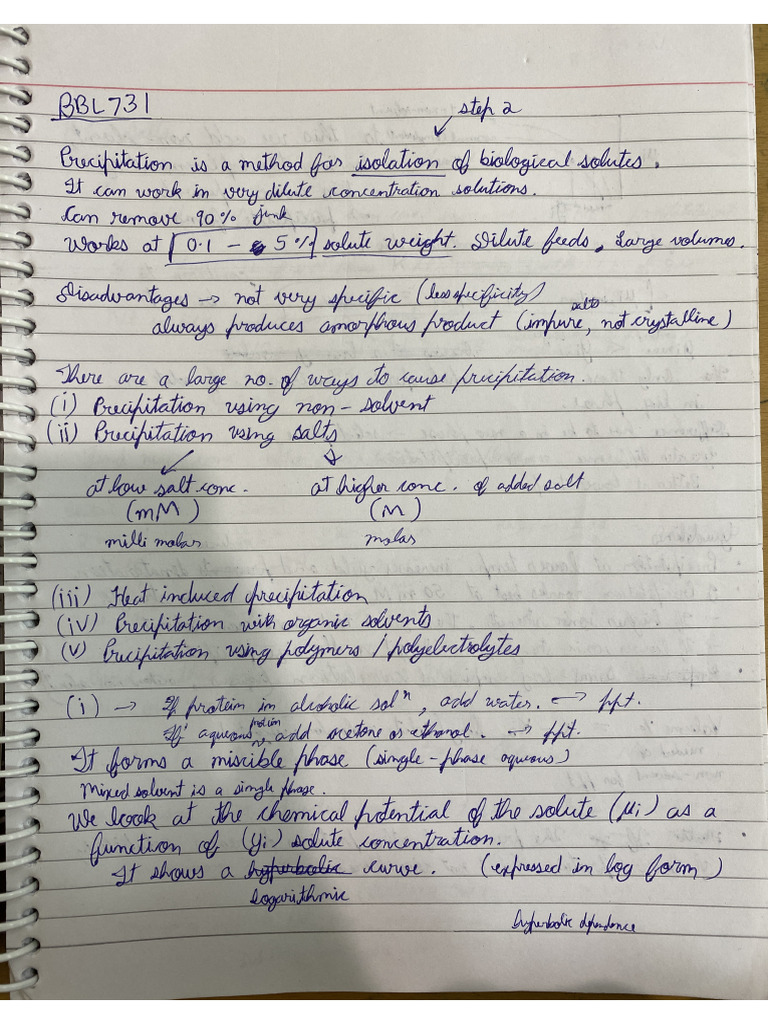 BBL731
step 2
Precipitation is a method for isolation of biological solutes.
It can work in very dilute concentration solutions.
Can remove 90% junk
Works at 0.1 - 5% solute weight. Dilute feeds, Large volumes.
Disadvantages → not very specific (less specificity)
salts
always produces amorphous product (impure, not crystalline)
There are a large no. of ways to cause precipitation.
(i) Precipitation using non-solvent
(ii) Precipitation using salts
at low salt conc. at higher conc. of added salt
(mM) (M)
milli molar molar
(iii) Heat induced precipitation
(iv) Precipitation with organic solvents
(v) Precipitation using polymers / polyelectrolytes
(i) → If protein in alcoholic solⁿ, add water. → ppt.
If aqueous protein, add acetone or ethanol. → ppt.
It forms a miscible phase (single-phase aqueous)
Mixed solvent is a single phase.
We look at the chemical potential of the solute (μi) as a
function of (yi) solute concentration.
It shows a hyperbolic curve. (expressed in log form)
logarithmic
hyperbolic dependence